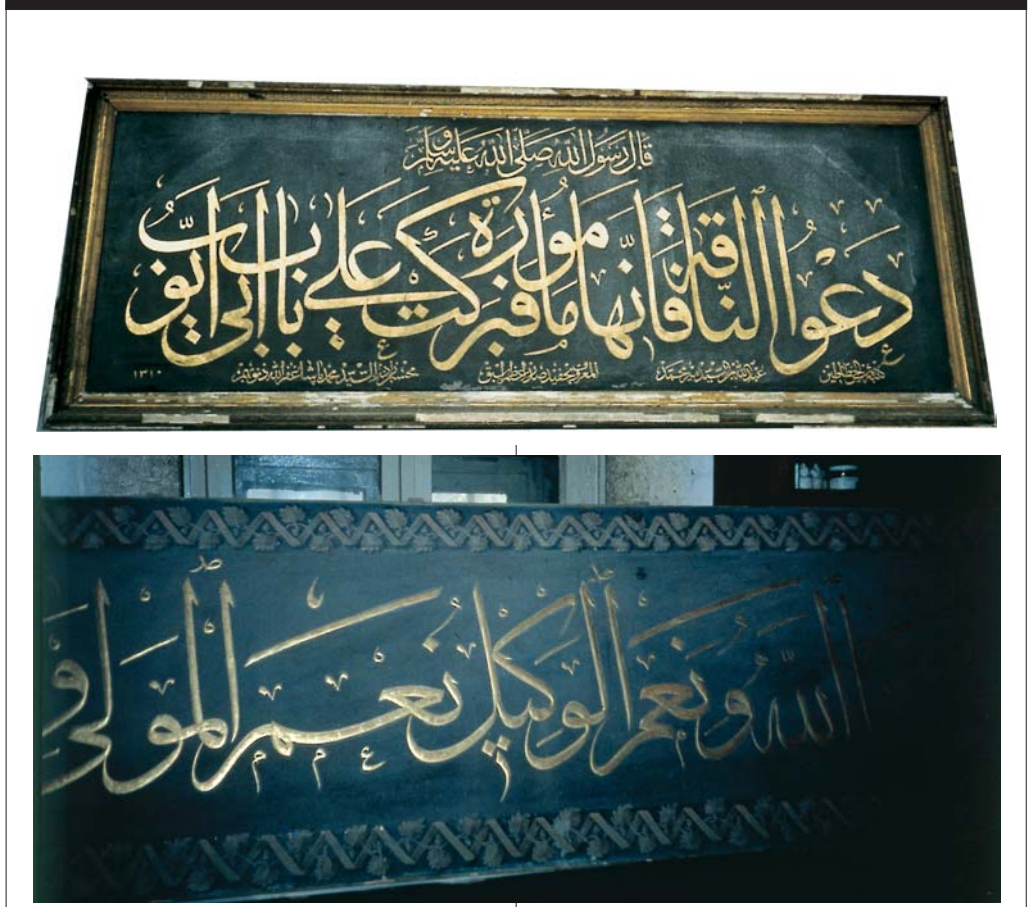 قال رسول الله صلى الله عليه وسلم
دعوا الناقة فانها مأمورة فبركت على باب ابى ايوب
١٣١٠
الله ونعم الوكيل نعم المولى و